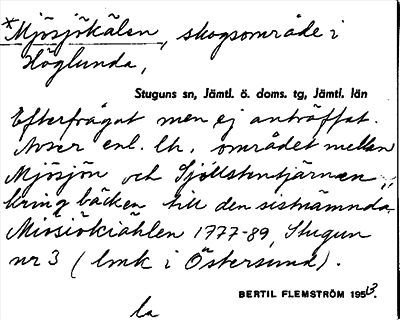 *Mjösjökälen, skogsområde i
Höglunda,
Stuguns sn, Jämtl. ö. doms. tg, Jämtl. län
Efterfrågat men ej anträffat.
Avser enl. lh. området mellan
Mjösjön och Fjällstentjärnen
kring bäcken till den sistnämnda.
Miösiökiählen 1777-89, Stugun
nr 3 (lmk i Östersund).
BERTIL FLEMSTRÖM 1953.
la